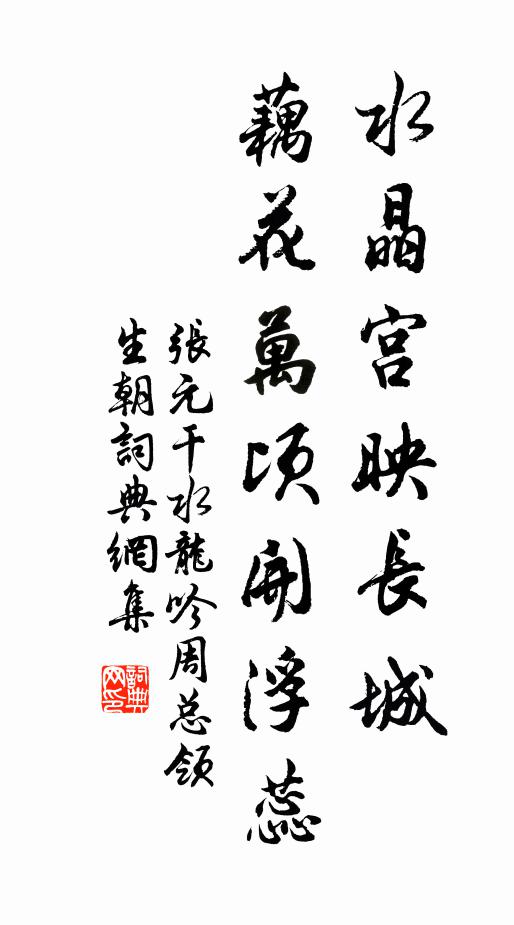 水晶宫映長城
藕花萬頃開浮蕊
張元干水龍吟周总領
生朝詞典網集
詞典网印